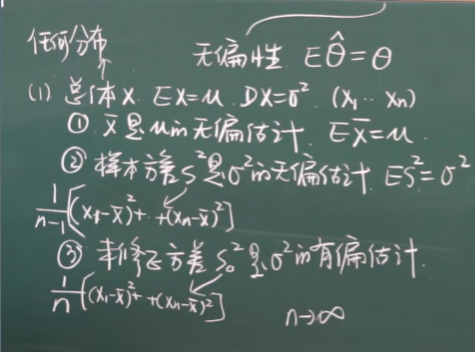 任何分布
无偏性 Eθ̂=θ
(1) 总体X. EX=μ. DX=σ². (x₁…xₙ)
① x̄是μ的无偏估计. Ex̄=μ.
② 样本方差S²是σ²的无偏估计 ES²=σ²
1/(n-1)[(x₁-x̄)²+…+(xₙ-x̄)²]
③ 未修正方差S₀²是σ²的有偏估计.
1/n[(x₁-x̄)²+…+(xₙ-x̄)²]
n→∞